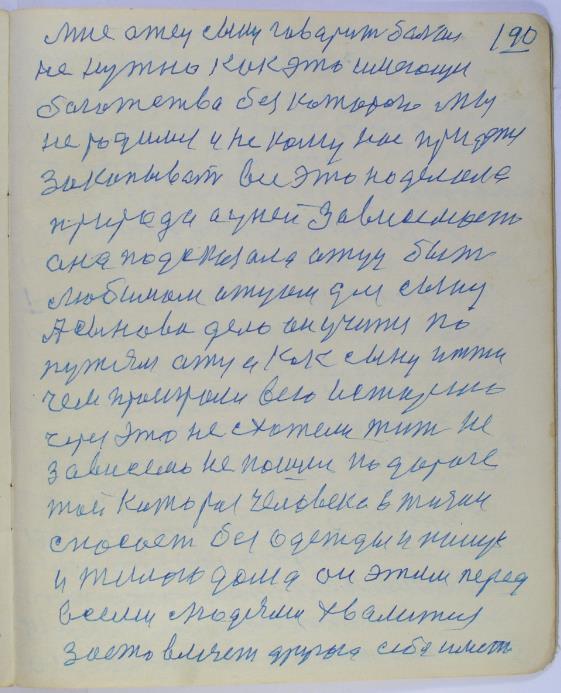 190
мне отец сыну говорит больш
не нужно как это имеющи
богатства без которого мы
не родились и не кому нас придет
закапыват все это наделала
природа а у ней зависимость
она подсказала отцу быт
любимом отцом для сыну
А сынова дело он учится по
путям отца как сыну итти
чем проиграли всю историю
через это не схотели жит не
зависемо не пошли по дороге
той которая человека в жизни
спосает без одежды и пищи
и жилого дома он этим перед
всеми людями хвалится
заставляет других себе иметь